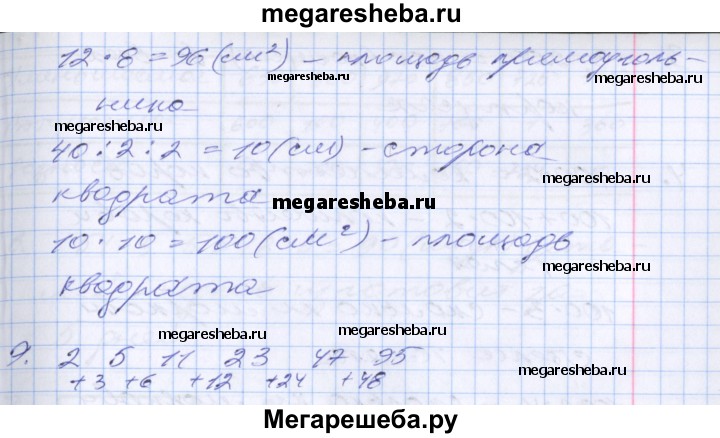 megaresheba.ru
12 · 8 = 96 (см²) – площадь прямоуголь-
megaresheba.ru
megaresheba.ru
ника
megaresheba.ru
40 : 2 : 2 = 10 (см) – сторона
квадрата megaresheba.ru
10 · 10 = 100 (см²) – площадь
megaresheba.ru
квадрата
megaresheba.ru
megaresheba.ru
9. 2 5 11 23 47 95
+3 +6 +12 +24 +48
Мегарешеба.ру